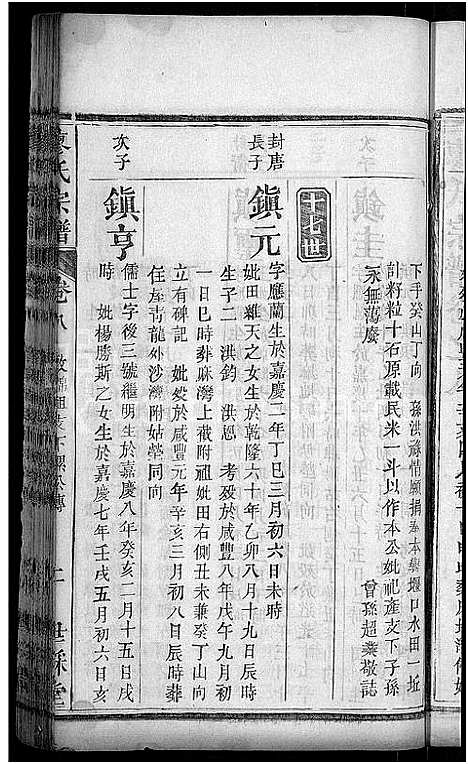 下手癸山丁向　孫洪祿情願捐奉本藥堰口水田一坵
計籽粒十石原載民米一斗以作本公妣祀產支下子孫
永無荡廢　曾孫超業敬誌
十七世
封唐長子
鎮元
字應蘭生於嘉慶二年丁巳三月初六日未時
妣田雞天之女生於乾隆六十年乙卯八月十九日辰時
生子二　洪鈞　洪恩　考歿於咸豐八年戊午九月初
一日巳時葬麻灣上薇附祖妣田右側丑未兼癸丁山向
立有碑記　妣歿於咸豐元年辛亥三月初八日辰時葬
住屋青龍外沙灣附姑塋同向
次子
鎮亨
儒士字後三號繼明生於嘉慶八年癸亥二月十五日戌
時　妣楊勝斯之女生於嘉慶七年壬戌五月初六日亥
氏宗譜
卷八
二
世綵堂